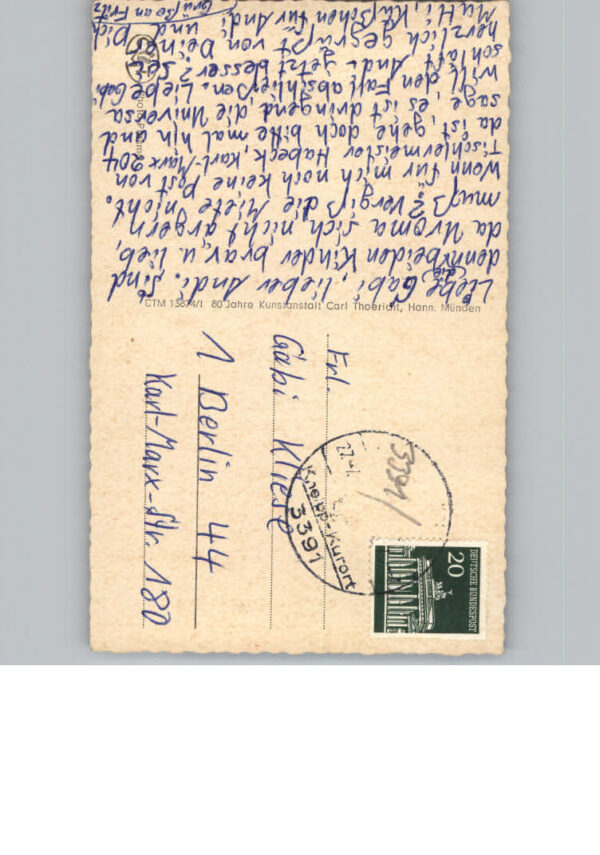 Liebe Gabi, lieber Andi. Sind
denn die beiden Kinder brav u. lieb,
da Uroma sich nicht ärgern
muß? Vergiß die Miete nicht.
Wenn für mich noch keine Post von
Tischlermeister Habeck, Karl-Marx 204
da ist, gehe doch bitte mal hin und
sage, es ist dringend, die Universa
will den Fall abschließen. Liebe Gabi,
schläft Andi jetzt besser? Sei
herzlich gegrüßt von Deiner
Mutti, Küßchen für Andi und Dich
Grüße an Fritz
CTM 13874/1 80 Jahre Kunstanstalt Carl Thoericht, Hann. Münden
Frl.
Gabi Kliese
1 Berlin 44
Karl-Marx-Str. 180
3391
Kneipp-Kurort
3391
20
DEUTSCHE BUNDESPOST